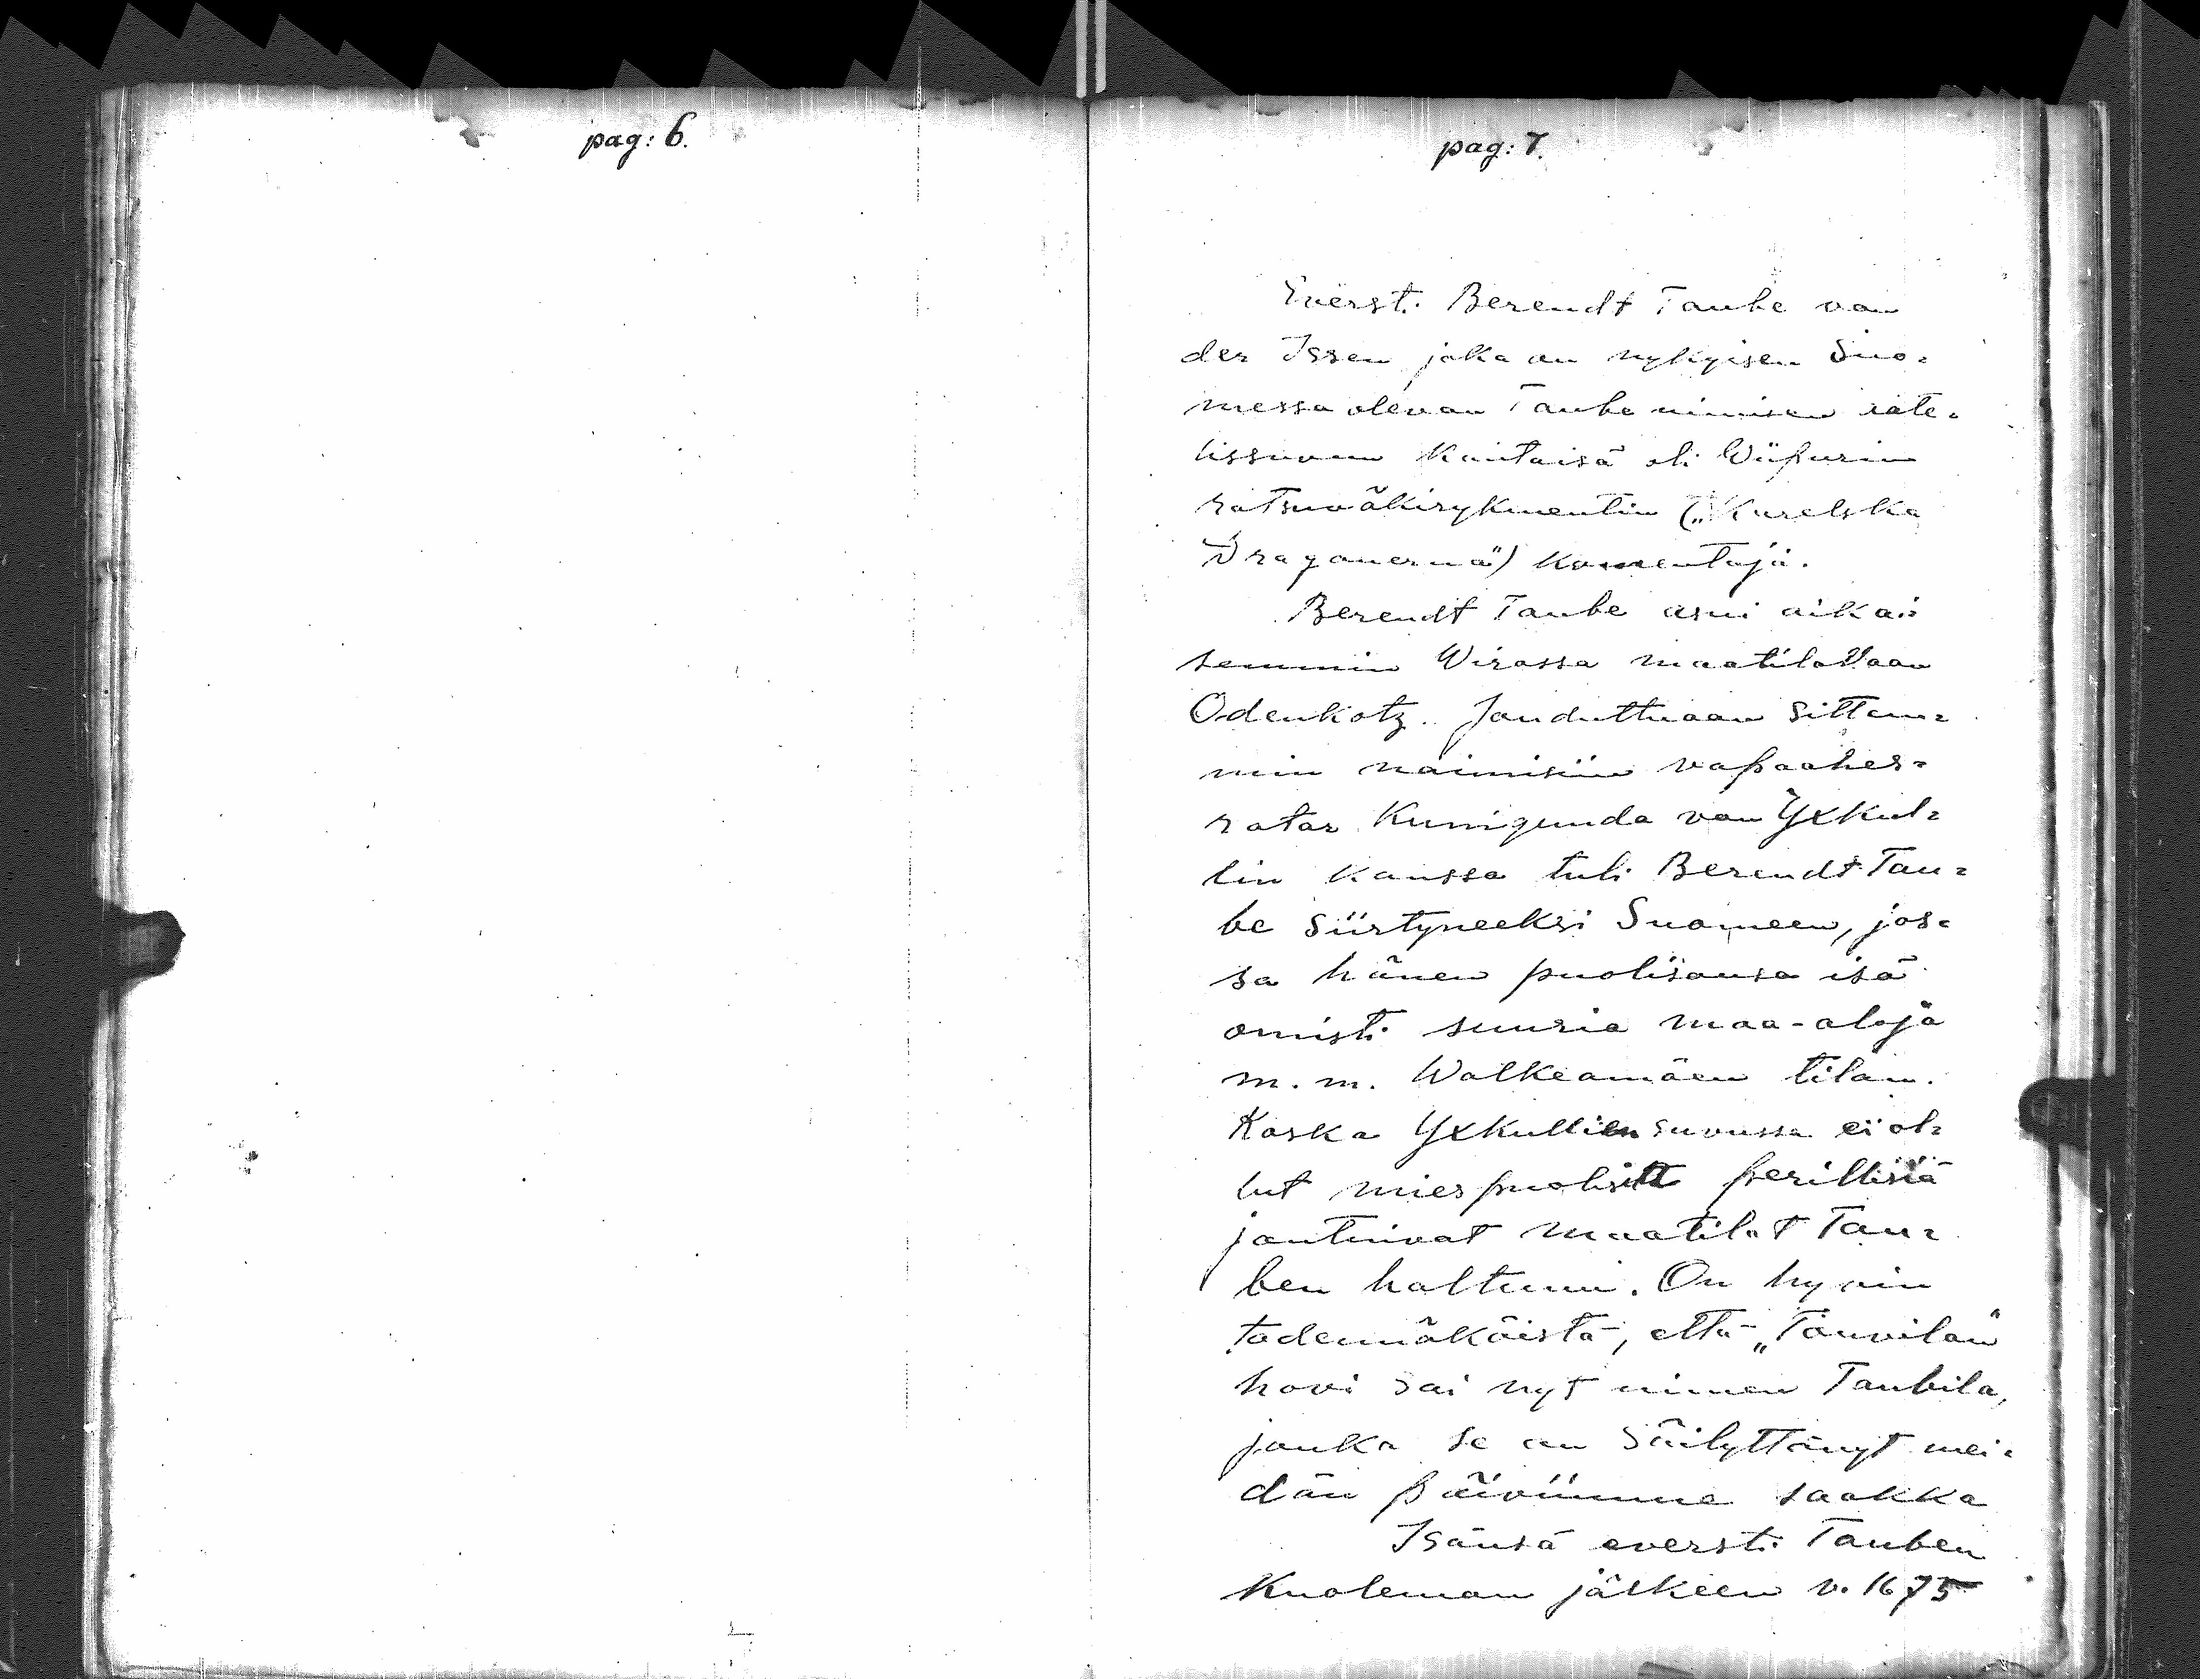 pag: 6.
pag: 7.
Eversti Berendt Taube van
der Issen joka on nykyisen Suo=
messa olevan Taube nimisen aate=
lissuvun kantaisä oli Wiipurin
ratsuväkirykmentin („Karelska
Dragonerna") komentaja.
Berendt Taube asui aikai=
semmin Wirossa maatilallaan
Odenkotz. Jouduttuaan sittem=
min naimisiin vapaaher=
ratar Kunigunda van Yxkul=
lin kanssa tuli Berendt Tau=
be siirtyneeksi Suomeen, jos=
sa hänen puolisonsa isä
omisti suuria maa-aloja
m. m. Walkeamäen tilan.
Koska Yxkullien suvussa ei ol=
lut miespuolisia perillisiä
joutuivat maatilat Tau=
ben haltuun. On hyvin
todennäköistä, että „Touvilan"
hovi sai nyt nimen Taubila,
jonka se on säilyttänyt mei=
dän päiviimme saakka
Isänsä eversti Tauben
Kuoleman jälkeen v. 1675